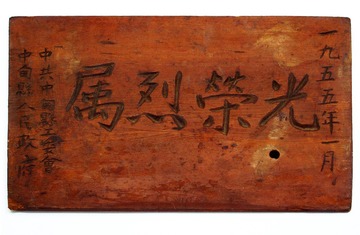 一九五五年一月
光榮烈属
中共中甸縣工委會
中甸縣人民政府